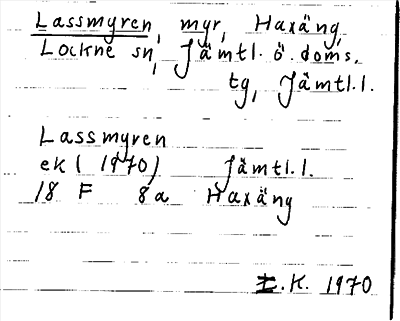 Lassmyren, myr, Haxäng,
Lockne sn, Jämtl. ö. doms.
tg, Jämtl.l.
Lassmyren
ek (1970) Jämtl.l.
18 F 8a Haxäng
I.K. 1970